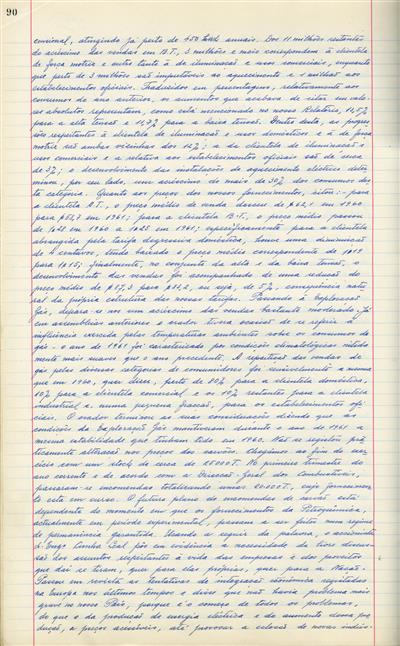 90
cersional, atingindo já perto de 450 kwh anuais. Dos 11 milhões restantes
do acréscimo das vendas em B.T., 3 milhões e mais correspondem à clientela
de força motriz e outro tanto à de iluminação e usos comerciais, enquanto
que perto de 3 milhões são imputáveis ao aquecimento e 1 milhão aos
estabelecimentos oficiais. Traduzidos em percentagens, relativamente aos
consumos do ano anterior, os aumentos que acabava de citar em valo-
res absolutos representam, como está mencionado no nosso Relatório, 14,5%
para a alta tensão e 11,7% para a baixa tensão. Dentro desta, as progres-
sões respeitantes à clientela de iluminação e usos domésticos e à de força
motriz são ambas vizinhas dos 12%; a da clientela de iluminação e
usos comerciais e a relativa aos estabelecimentos oficiais são de cerca
de 8%; o desenvolvimento das instalações de aquecimento eléctrico deter-
minou, por seu lado, um acréscimo de mais de 30% dos consumos des-
ta categoria. Quanto aos preços dos nossos fornecimentos, citou: - para
a clientela A.T., o preço médio de venda desceu de em 1960
para em 1961; para a clientela B.T., o preço médio passou
de em 1960 a em 1961; especificamente, para a clientela
abrangida pela tarifa degressiva doméstica, houve uma diminuição
de 4 centavos, tendo baixado o preço médio correspondente de
para; finalmente, no conjunto da alta e da baixa tensão, o
desenvolvimento das vendas foi acompanhado de uma redução do
preço médio de para, ou seja, de 5%, consequência natu-
ral da própria estrutura das nossas tarifas. Passando à Exploração
Gás, depara-se-nos um acréscimo das vendas bastante moderado. Já
em assembleias anteriores o orador tivera ocasião de se referir à
influência exercida pelas temperaturas ambientes sobre os consumos de
gás - o ano de 1961 foi caracterizado por condições climatológicas nitida-
mente mais suaves que o ano precedente. A repartição das vendas de
gás pelas diversas categorias de consumidores foi sensivelmente a mesma
que em 1960, quer dizer, perto de 80% para a clientela doméstica,
10% para a clientela comercial e os 10% restantes para a clientela
industrial e, numa pequena fracção, para os estabelecimentos ofi-
ciais. O orador terminou as suas considerações dizendo que as
condições da Exploração Gás mantiveram durante o ano de 1961 a
mesma estabilidade que tinham tido em 1960. Não se registou prá-
ticamente alteração nos preços dos carvões. Chegámos ao fim do exer-
cício com um stock de cerca de 25000 T. No primeiro trimestre do
ano corrente e de acordo com a Direcção-Geral dos Combustíveis,
passaram-se encomendas totalizando umas T., cujo fornecimen-
to está em curso. O futuro plano de encomendas de carvão está
dependente do momento em que os fornecimentos da Petroquímica,
actualmente em período experimental, passem a ser feitos num regime
de permanência garantida. Usando a seguir da palavra, o accionista
Sr. Engº Cunha Leal pôs em evidência a necessidade de livre discus-
são dos assuntos respeitantes à vida das empresas e dos proveitos
que daí se tiram, quer para elas próprias, quer para a Nação.
Passou em revista as tentativas de integração económica registadas
na Europa nos últimos tempos e disse que não havia problema mais
grave no nosso País, porque é o começo de todos os problemas,
do que o da produção de energia eléctrica e do aumento dessa pro-
dução, a preços acessíveis, até provocar a eclosão de novas indús-